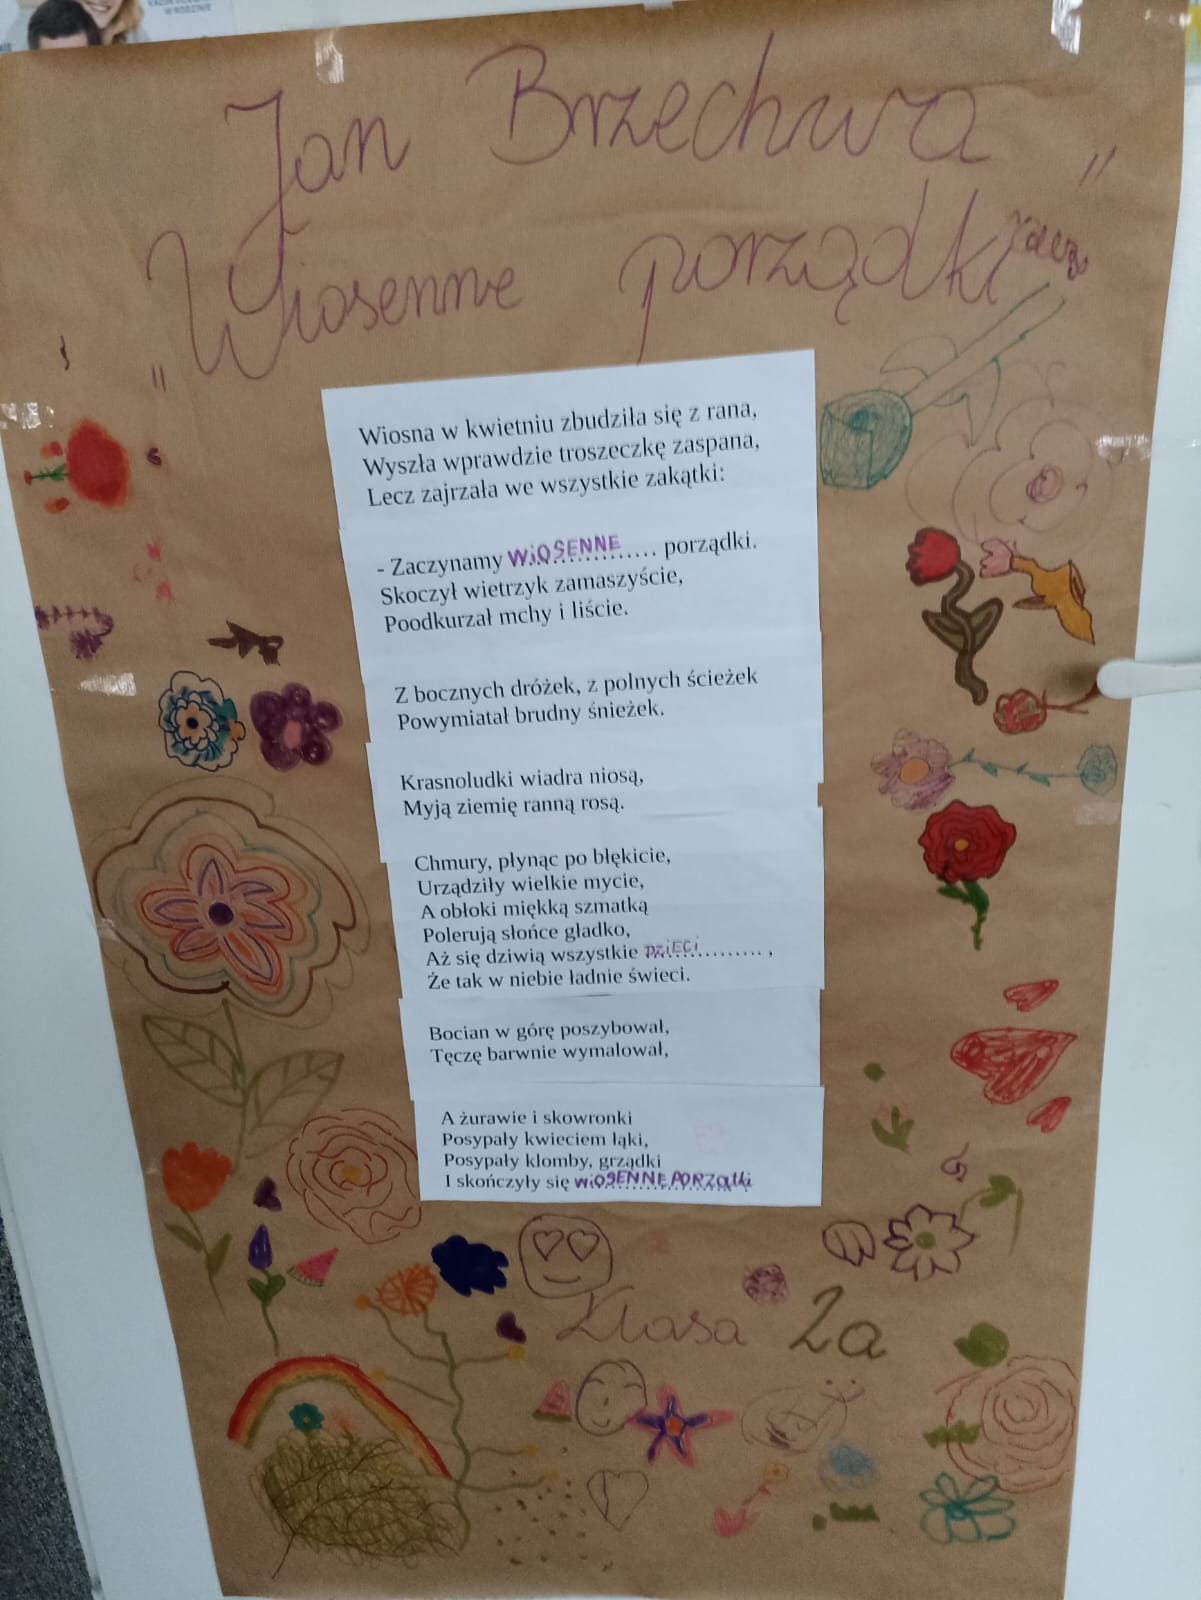 W RODZINIE
Jan Brzechwa
„Wiosenne porządki"
Wiosna w kwietniu zbudziła się z rana,
Wyszła wprawdzie troszeczkę zaspana,
Lecz zajrzała we wszystkie zakątki:
- Zaczynamy WiOSENNE.... porządki.
Skoczył wietrzyk zamaszyście,
Poodkurzał mchy i liście.
Z bocznych dróżek, z polnych ścieżek
Powymiatał brudny śnieżek.
Krasnoludki wiadra niosą,
Myją ziemię ranną rosą.
Chmury, płynąc po błękicie,
Urządziły wielkie mycie,
A obłoki miękką szmatką
Polerują słońce gładko,
Aż się dziwią wszystkie DZiECi............ ,
Że tak w niebie ładnie świeci.
Bocian w górę poszybował,
Tęczę barwnie wymalował,
A żurawie i skowronki
Posypały kwieciem łąki,
Posypały klomby, grządki
I skończyły się WiOSENNE PORZątki
Klasa 2a